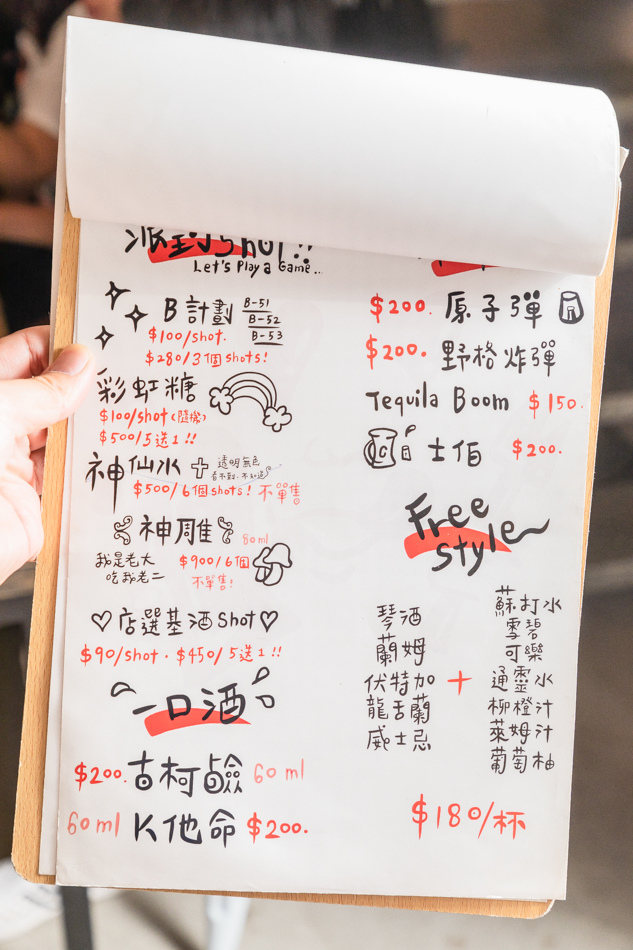 派對Shot!!
Let's Play a Game...
B計劃
B-51
B-52
B-53
$100/shot.
$280/3個shots!
彩虹糖
$100/shot(隨機)
$500/5送1!!
神仙水+
透明無色
$500/6個shots! 不單售
神雕
80ml
我是老大
吃我老二
$900/6個
不單售!
♡店選基酒Shot♡
$90/shot.$450/5送1!!
一口酒
$200.古柯鹼 60ml
60ml K他命 $200.
$200. 原子彈
$200. 野格炸彈
Tequila Boom $150.
士伯 $200.
Free
style
琴酒
蘭姆
伏特加
龍舌蘭
威士忌
+
蘇打水
雪碧
可樂
通靈水
柳橙汁
萊姆汁
葡萄柚
$180/杯